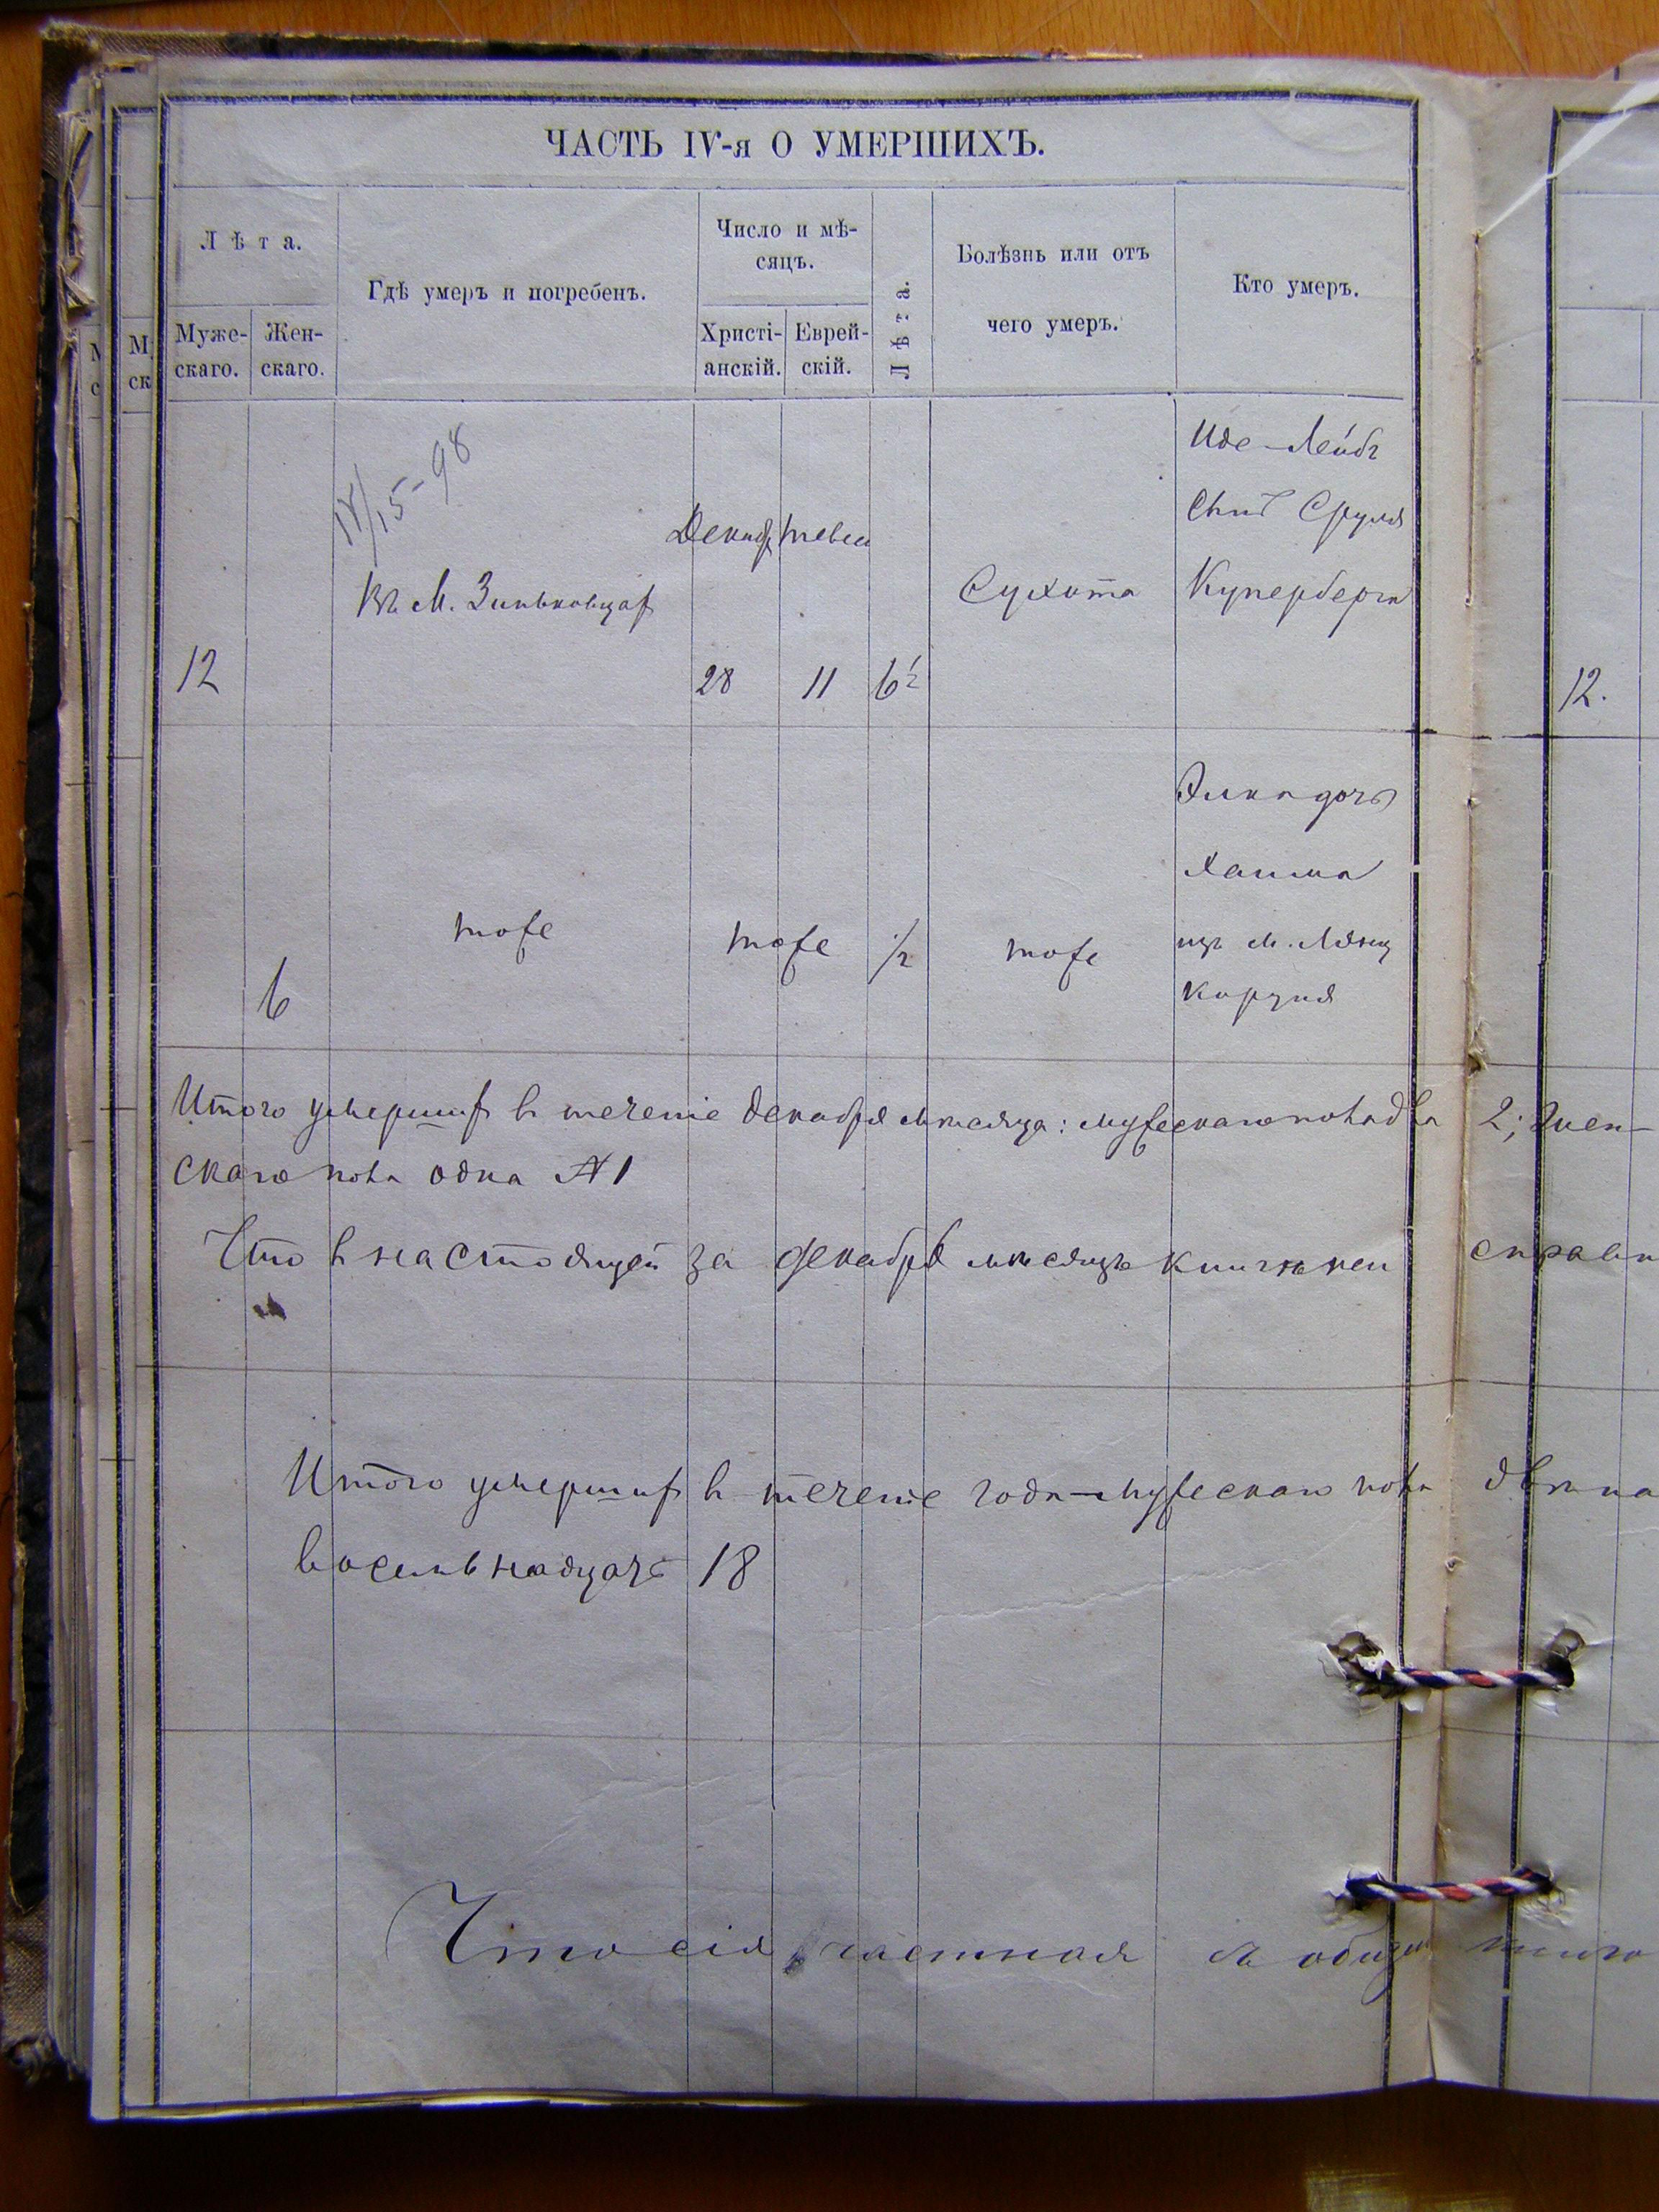 ЧАСТЬ IV-я О УМЕРШИХЪ.
Лѣта.
Муже-
скаго.
Жен-
скаго.
Гдѣ умеръ и погребенъ.
Число и мѣ-
сяцъ.
Христі-
анскій.
Еврей-
скій.
Лѣта.
Болѣзнь или отъ
чего умеръ.
Кто умеръ.
12
въ М. Зиньковцах
28
11
6½
Сухота
Иде-Лейбъ
Сынъ Сруля
Куперберга
12.
6
тоже
тоже
½
тоже
дочь
Хаима
изъ М.
Итого умерших в теченіе декабря мѣсяца: мужескаго пола два 2; жен-
скаго пола одна №1
Что в настоящей за декабрь мѣсяцъ книгѣ
Итого умерших в теченіе года мужескаго пола
восемьнадцать 18
Что сія частная съ